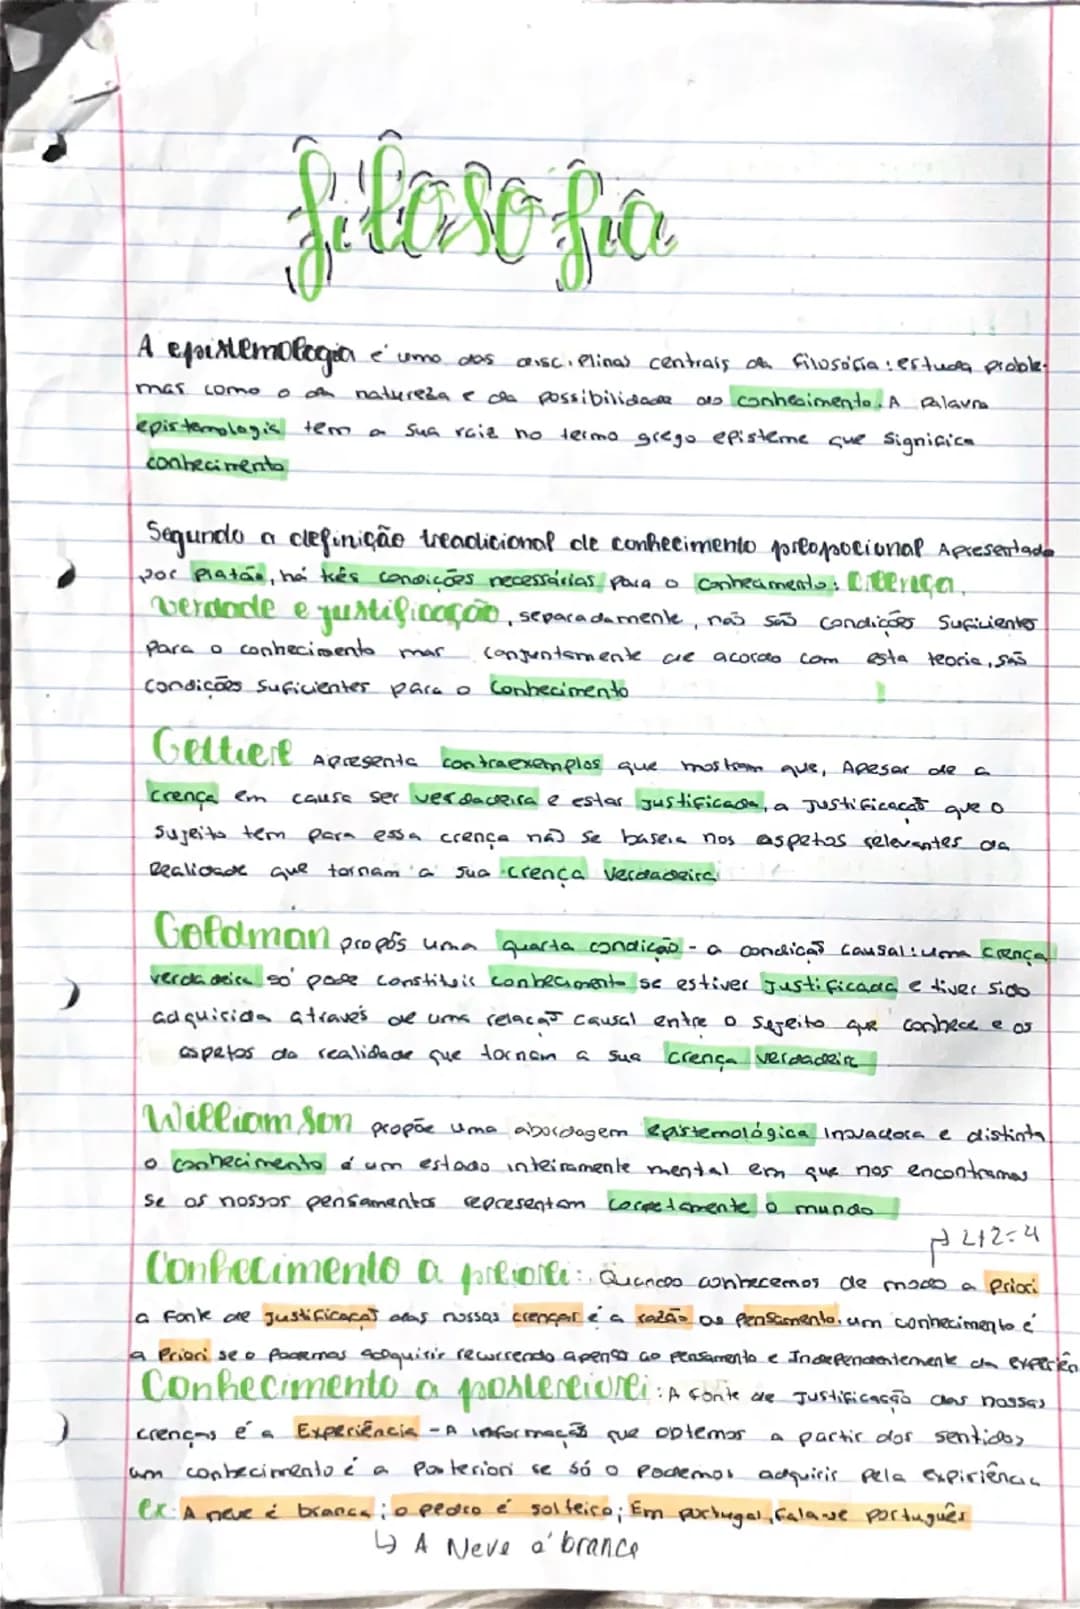 filosofia
A epistemologia é uma das disciplinas centrais da filosofia: estuda proble-
mas como o da natureza e da possibilidade do conhecimento. A palavra
epistemologia tem a sua raiz no termo grego episteme que significa
conhecimento
Segundo a definição tradicional de conhecimento proposicional Apresentada
por Platão, há três condições necessárias para o conhecimento: Crença,
verdade e justificação, separadamente, não são condições suficientes
para o conhecimento mas conjuntamente de acordo com esta teoria, são
condições suficientes para o conhecimento
Gettier Apresenta contraexemplos que mostram que, Apesar de a
crença em causa ser verdadeira e estar justificada, a justificação que o
sujeito tem para essa crença não se baseia nos aspetos relevantes da
Realidade que tornam a sua crença verdadeira
Goldman propôs uma quarta condição - a condição causal: uma crença
verdadeira só pode constituir conhecimento se estiver justificada e tiver sido
adquirida através de uma relação causal entre o sujeito que conhece e os
aspetos da realidade que tornam a sua crença verdadeira
Williamson propõe uma abordagem epistemológica Inovadora e distinta
o conhecimento é um estado inteiramente mental em que nos encontramos
se os nossos pensamentos representam corretamente o mundo
2+2=4
Conhecimento a priori: Quando conhecemos de modo a priori
a fonte de justificação das nossas crenças é a razão ou pensamento. um conhecimento é
a Priori se o podemos adquirir recorrendo apenas ao pensamento e Independentemente da experiên
Conhecimento a posteriori: A fonte de justificação das nossas
crenças é a Experiência - A informação que obtemos a partir dos sentidos,
um conhecimento é a Posteriori se só o podemos adquirir pela expiriência
ex: A neve é branca; o pedro é solteiro; Em portugal, fala-se português
↳ A Neve é branca